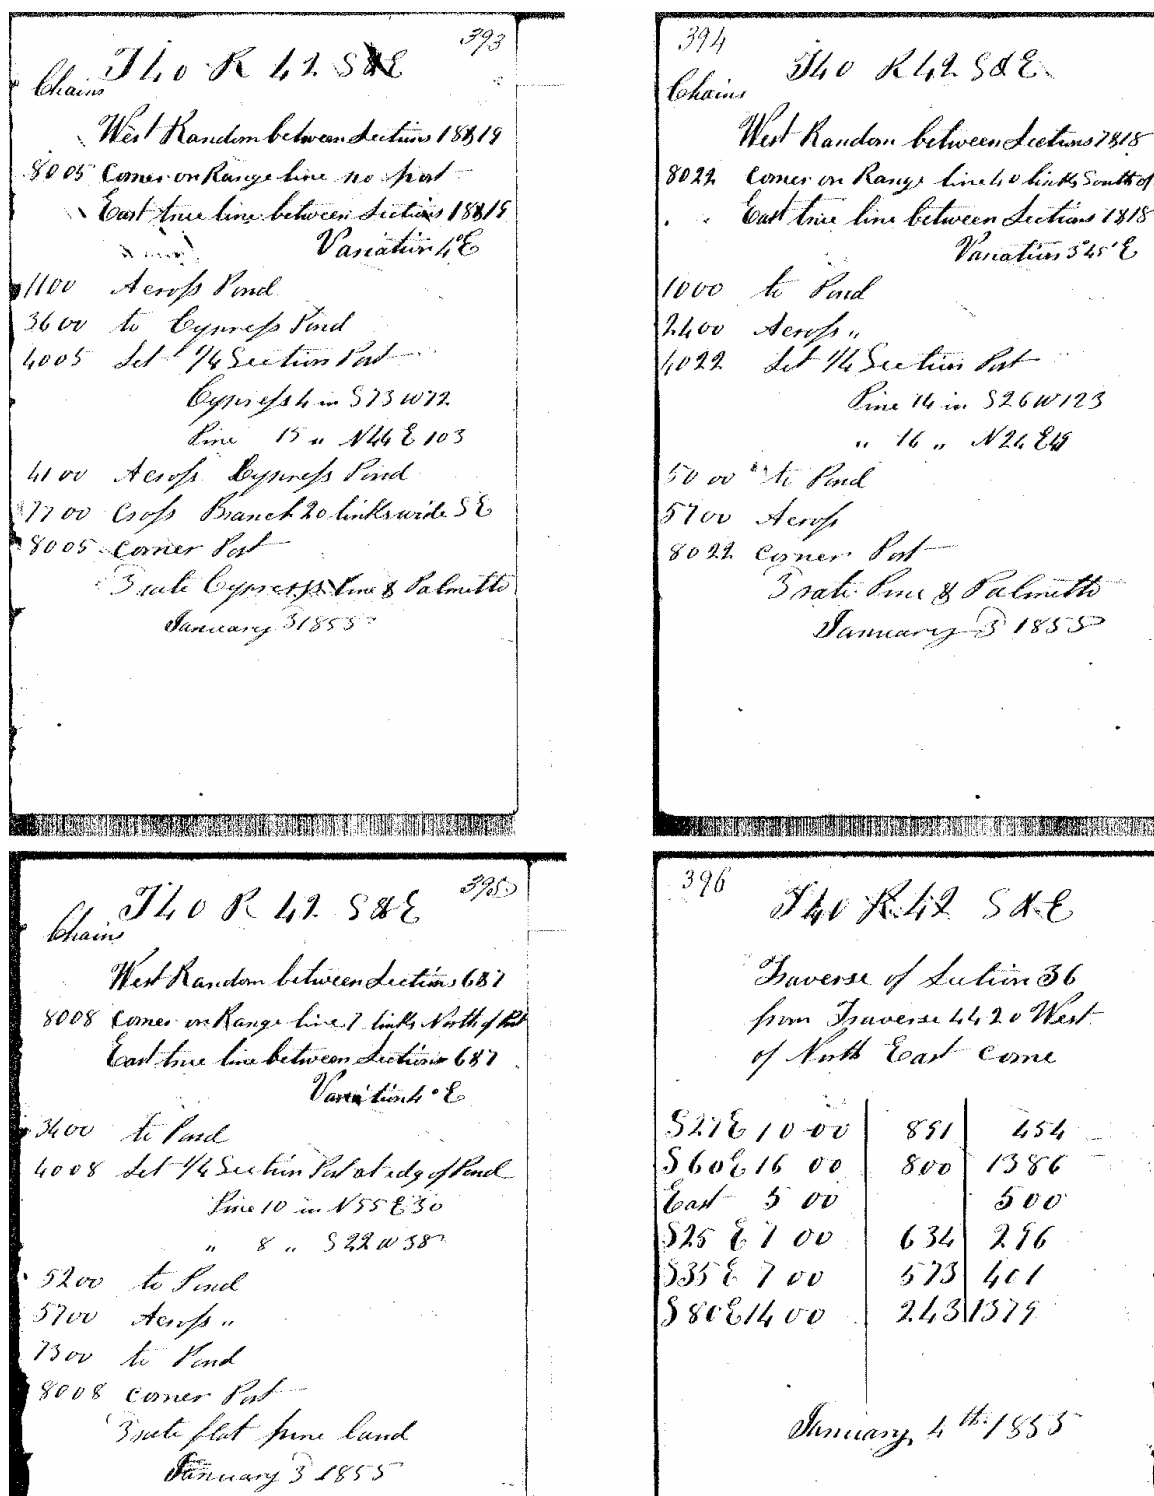 393
T40 R 42 S&E
Chains
West Random between Sections 18&19
8005 Corner on Range line no post
East true line between Sections 18&19
Variation 4°E
1100 Across Pond
3600 to Cypress Pond
4005 Set 1/4 Section Post
Cypress 4 in S73W72
Pine 15 " N44E103
4100 Across Cypress Pond
7700 Cross Branch 20 links wide SE
8005 Corner Post
3 rate Cypress Pine & Palmetto
January 3 1855
394
T40 R42 S&E
Chains
West Random between Sections 7&18
8022 Corner on Range line 40 links South of
East true line between Sections 7&18
Variation 3°45'E
1000 to Pond
2400 Across "
4022 Set 1/4 Section Post
Pine 14 in S26W123
" 16 " N24E49
5000 to Pond
5700 Across
8022 Corner Post
3 rate Pine & Palmetto
January 3 1855
395
T40 R 42 S&E
Chains
West Random between Sections 6&7
8008 Corner on Range line 7 links North of Post
East true line between Sections 6&7
Variation 4°E
3400 to Pond
4008 Set 1/4 Section Post at edg of Pond
Pine 10 in N55E30
" 8 " S22W38
5200 to Pond
5700 Across "
7300 to Pond
8008 Corner Post
3 rate flat pine land
January 3 1855
396
T40 R.42 S&E
Traverse of Section 36
from Traverse 4420 West
of North East Corne
S27E 10 00 891 454
S60E 16 00 800 1386
East 5 00 500
S25E 7 00 634 296
S35E 7 00 573 401
S80E 14 00 243 1379
January 4th 1855